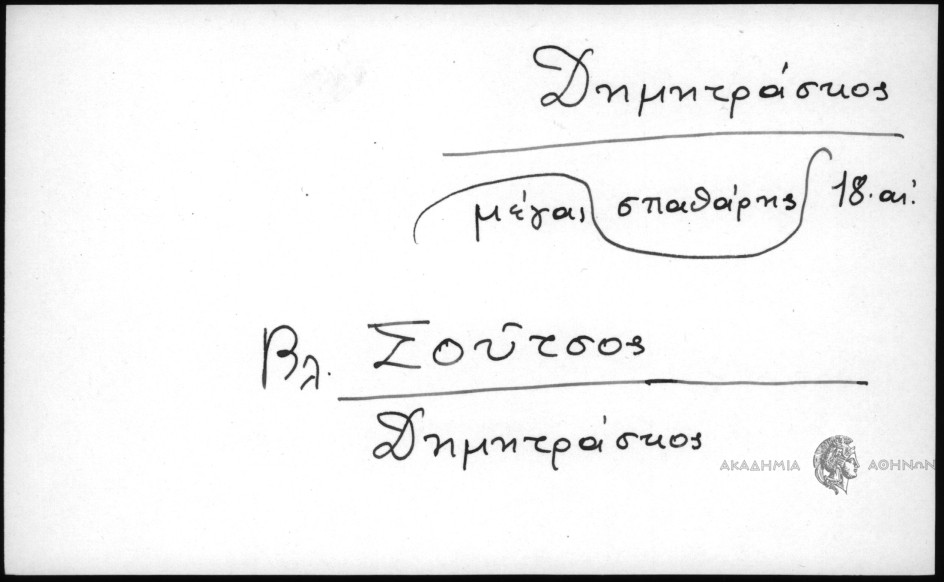 Δημητράσκος
μέγας σπαθάρης 18. αἰ.
Βλ. Σοῦτσος
Δημητράσκος
ΑΚΑΔΗΜΙΑ ΑΘΗΝΩΝ